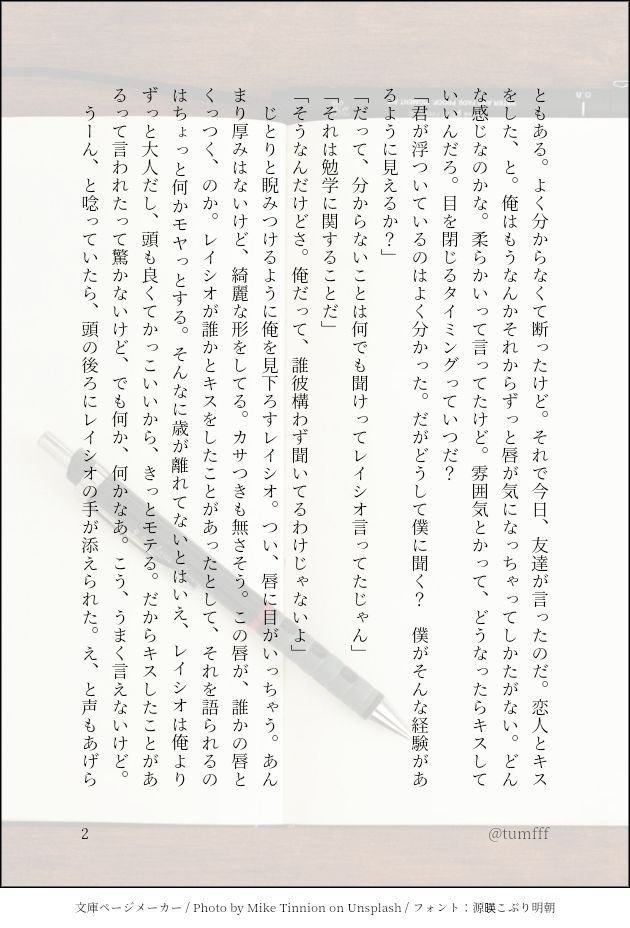 ともある。よく分からなくて断ったけど。それで今日、友達が言ったのだ。恋人とキス
をした、と。俺はもうなんかそれからずっと唇が気になっちゃってしかたがない。どん
な感じなのかな。柔らかいって言ってたけど。雰囲気とかって、どうなったらキスして
いいんだろ。目を閉じるタイミングっていつだ？
「君が浮ついているのはよく分かった。だがどうして僕に聞く？　僕がそんな経験があ
るように見えるか？」
「だって、分からないことは何でも聞けってレイシオ言ってたじゃん」
「それは勉学に関することだ」
「そうなんだけどさ。俺だって、誰彼構わず聞いてるわけじゃないよ」
　じとりと睨みつけるように俺を見下ろすレイシオ。つい、唇に目がいっちゃう。あん
まり厚みはないけど、綺麗な形をしてる。カサつきも無さそう。この唇が、誰かの唇と
くっつく、のか。レイシオが誰かとキスをしたことがあったとして、それを語られるの
はちょっと何かモヤっとする。そんなに歳が離れてないとはいえ、レイシオは俺より
ずっと大人だし、頭も良くてかっこいいから、きっとモテる。だからキスしたことがあ
るって言われたって驚かないけど、でも何か、何かなあ。こう、うまく言えないけど。
　うーん、と唸っていたら、頭の後ろにレイシオの手が添えられた。え、と声もあげら
2
@tumfff
文庫ページメーカー / Photo by Mike Tinnion on Unsplash / フォント：源暎こぶり明朝